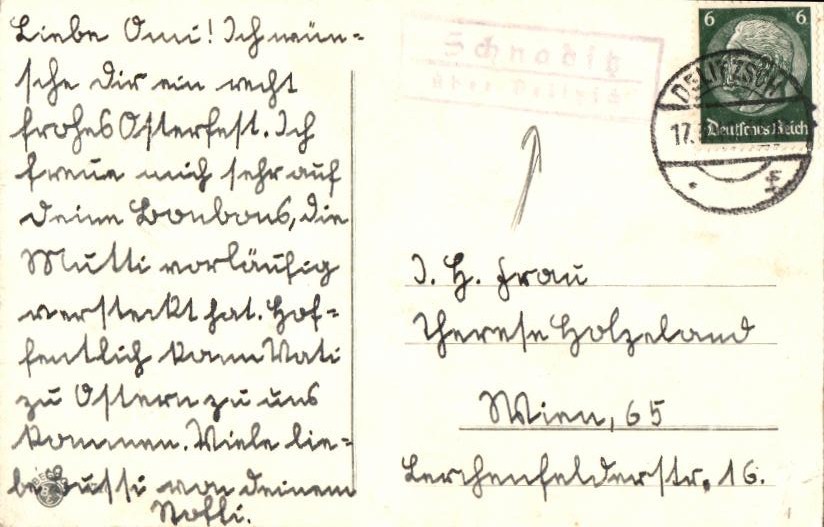 Liebe Omi! Ich wün-
sche dir ein recht
frohes Osterfest. Ich
freue mich sehr auf
deine Bonbons, die
Mutti vorläufig
versteckt hat. Hof-
fentlich kann Vati
zu Ostern zu uns
kommen. Viele lie-
be Bussi von deinem
Schnoditz
über Delitzsch
6 6
Deutsches Reich
DELITZSCH
17.
J. H. Frau
Therese Holzeland
Wien, 65
Lerchenfelderstr. 16.